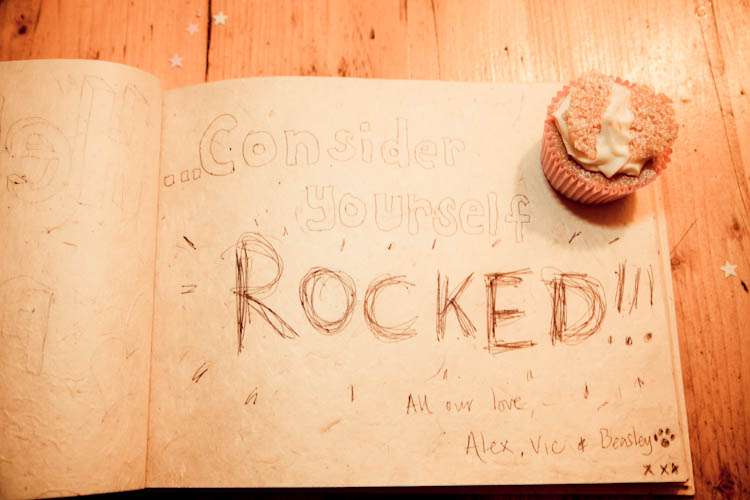 ...Consider
yourself
ROCKED!!!
All our love,
Alex, Vic & Beasley
x x x